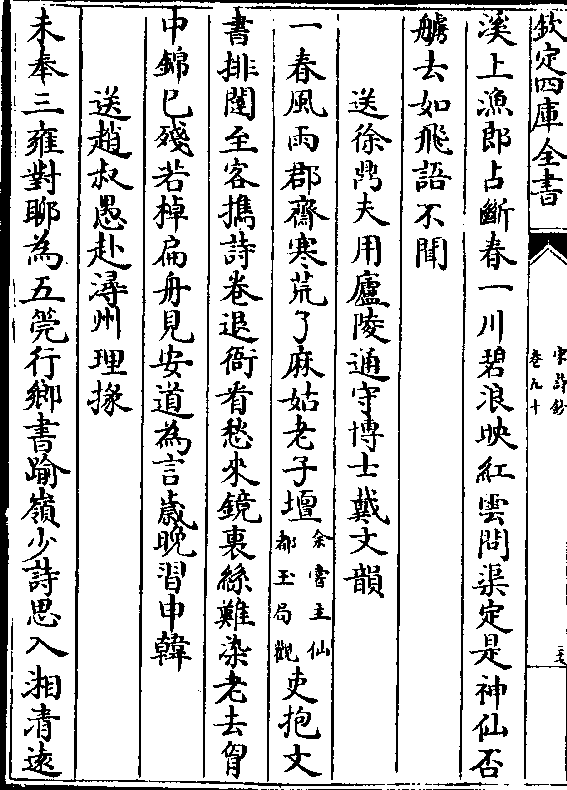 欽定四庫全書
宋詩鈔
卷九十
溪上漁郎占斷春一川碧浪映紅雲問渠定是神仙否
艣去如飛語不聞
送徐鼎夫用廬陵通守博士戴文韻
一春風雨郡齋寒荒了麻姑老子壇余嘗主仙都玉局觀吏抱文
書排闥至客擕詩卷退衙看愁來鏡裏絲難染老去胷
中錦已殘若棹扁舟見安道為言歳晚習申韓
送趙叔愚赴潯州理掾
未奉三雍對聊為五筦行鄉書踰嶺少詩思入湘清遠